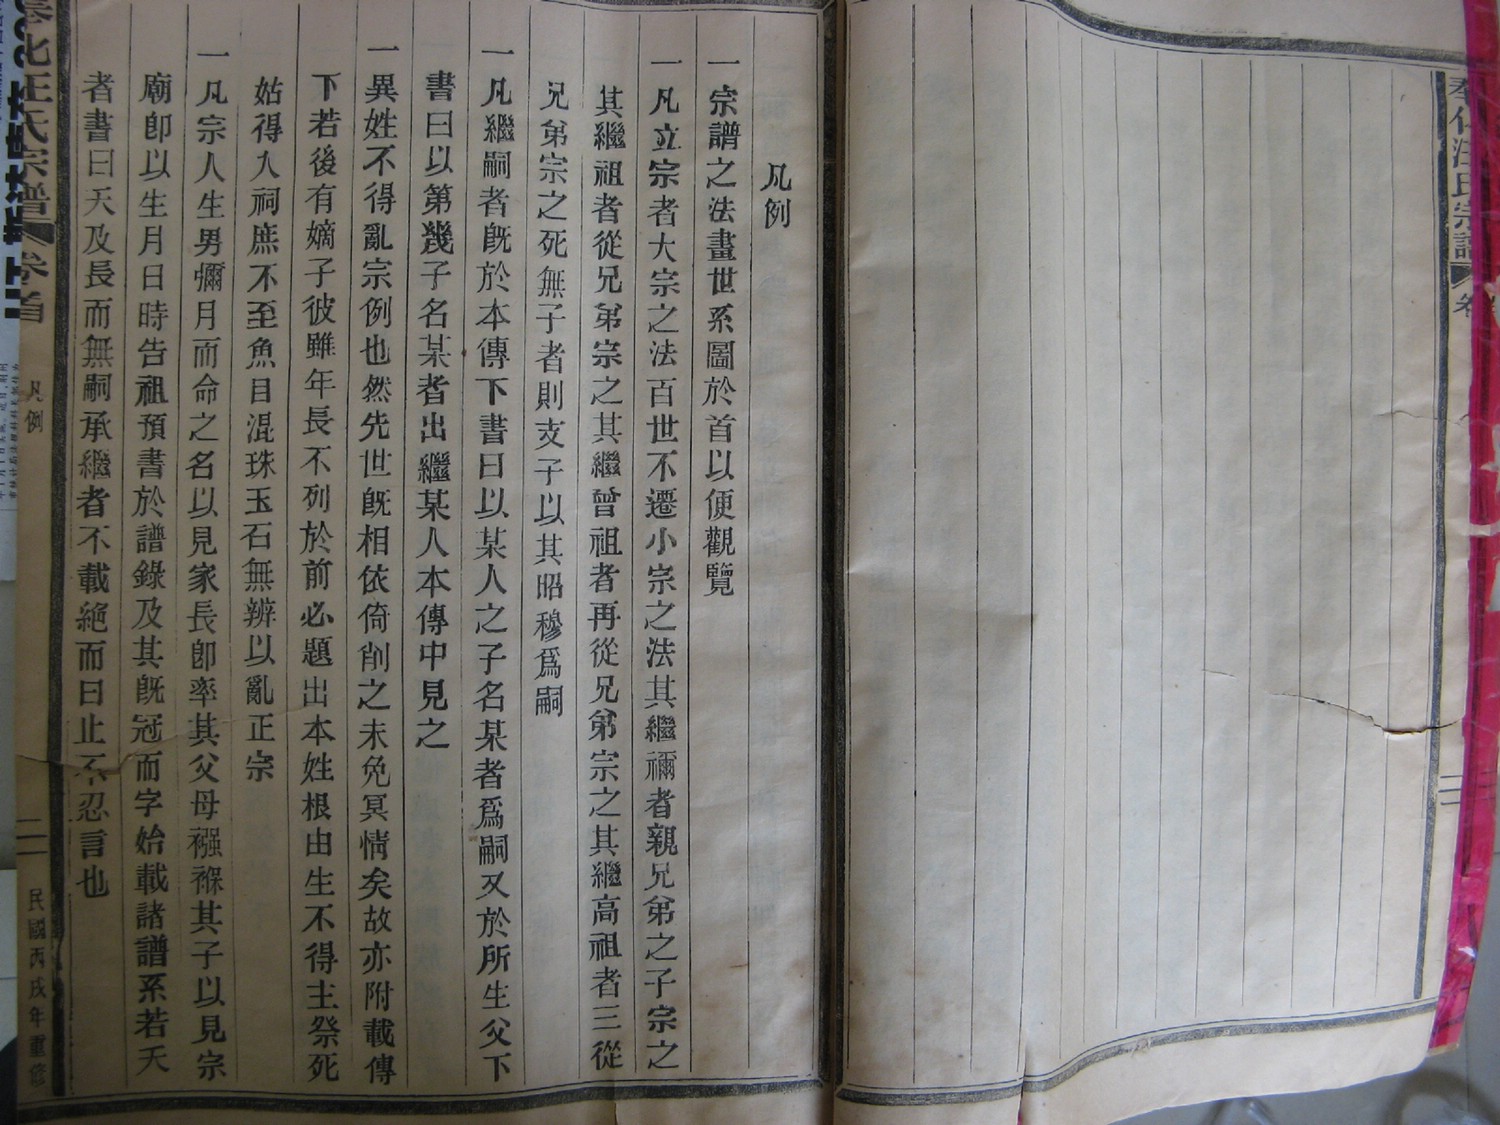 奉化汪氏宗譜 卷
凡例
一宗譜之法畫世系圖於首以便觀覽
一凡立宗者大宗之法百世不遷小宗之法其繼禰者親兄弟之子宗之
其繼祖者從兄弟宗之其繼曾祖者再從兄弟宗之其繼高祖者三從
兄弟宗之死無子者則支子以其昭穆爲嗣
一凡繼嗣者旣於本傳下書曰以某人之子名某者爲嗣又於所生父下
書曰以第幾子名某者出繼某人本傳中見之
一異姓不得亂宗例也然先世旣相依倚削之未免冥情矣故亦附載傳
下若後有嫡子彼雖年長不列於前必題出本姓根由生不得主祭死
姑得入祠庶不至魚目混珠玉石無辨以亂正宗
一凡宗人生男彌月而命之名以見家長卽率其父母襁褓其子以見宗
廟卽以生月日時告祖預書於譜錄及其旣冠而字始載諸譜系若夭
者書曰夭及長而無嗣承繼者不載絶而曰止不忍言也
奉化汪氏宗譜 卷首 凡例 二 民國丙戌年重修